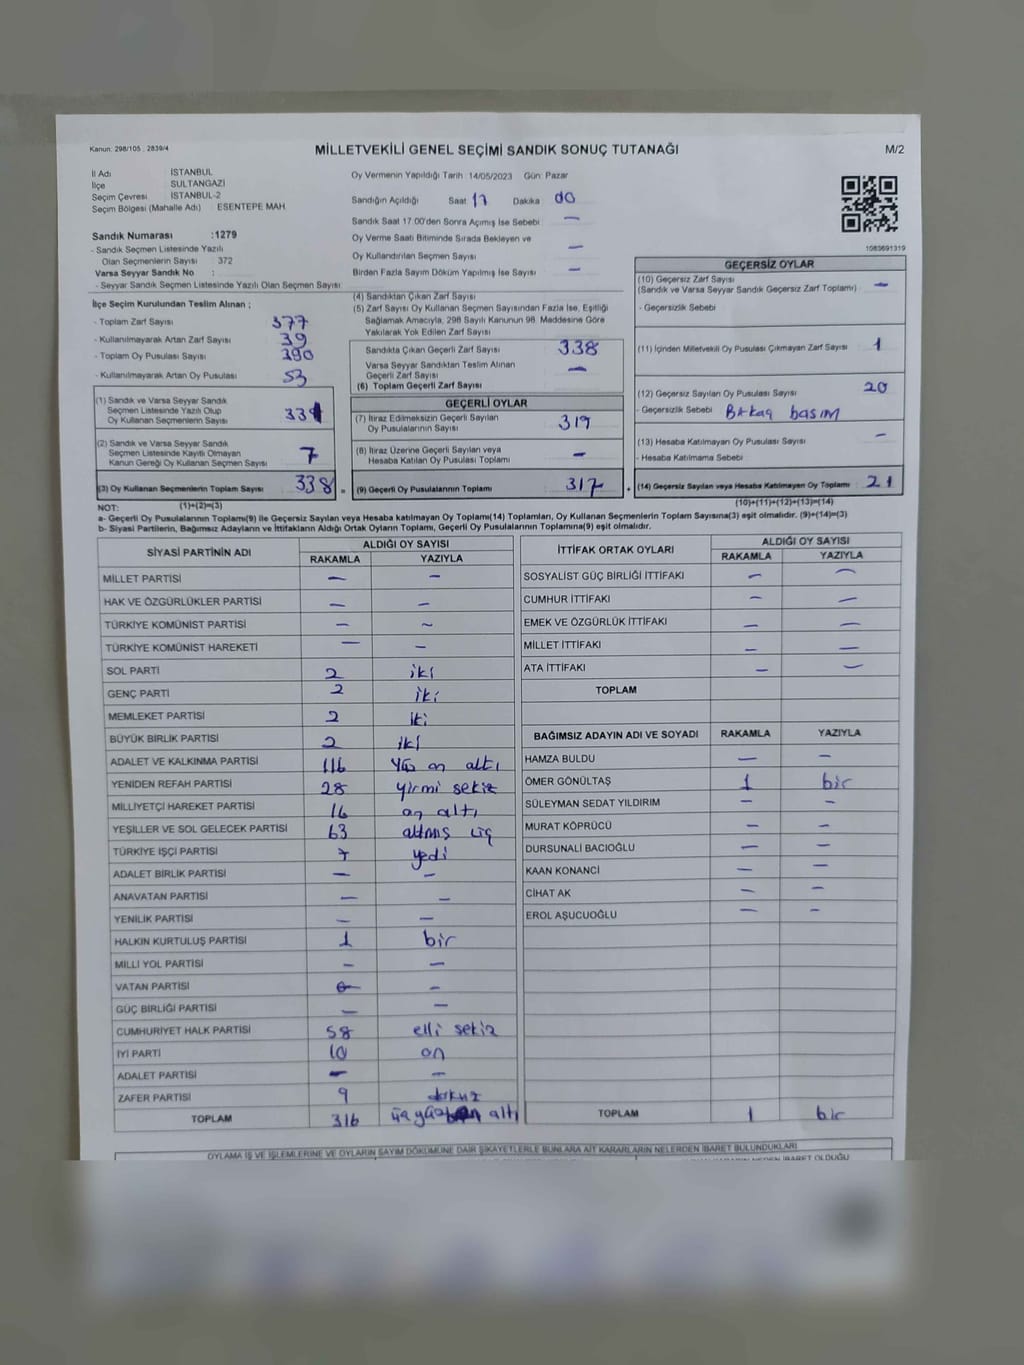 Kanun: 298/105 ; 2839/4
MİLLETVEKİLİ GENEL SEÇİMİ SANDIK SONUÇ TUTANAĞI
M/2
İl Adı İSTANBUL
İlçe SULTANGAZİ
Seçim Çevresi İSTANBUL-2
Seçim Bölgesi (Mahalle Adı) ESENTEPE MAH.
Sandık Numarası :1279
- Sandık Seçmen Listesinde Yazılı
Olan Seçmenlerin Sayısı : 372
Varsa Seyyar Sandık No :
- Seyyar Sandık Seçmen Listesinde Yazılı Olan Seçmen Sayısı
İlçe Seçim Kurulundan Teslim Alınan ;
- Toplam Zarf Sayısı 377
- Kullanılmayarak Artan Zarf Sayısı 39
- Toplam Oy Pusulası Sayısı 390
- Kullanılmayarak Artan Oy Pusulası 53
(1) Sandık ve Varsa Seyyar Sandık
Seçmen Listesinde Yazılı Olup
Oy Kullanan Seçmenlerin Sayısı 331
(2) Sandık ve Varsa Seyyar Sandık
Seçmen Listesinde Kayıtlı Olmayan
Kanun Gereği Oy Kullanan Seçmen Sayısı 7
(3) Oy Kullanan Seçmenlerin Toplam Sayısı 338
Oy Vermenin Yapıldığı Tarih :14/05/2023 Gün: Pazar
Sandığın Açıldığı Saat 17 Dakika 00
Sandık Saat 17:00'den Sonra Açımış İse Sebebi : —
Oy Verme Saati Bitiminde Sırada Bekleyen ve
Oy Kullandırılan Seçmen Sayısı —
Birden Fazla Sayım Döküm Yapılmış İse Sayısı —
(4) Sandıktan Çıkan Zarf Sayısı
(5) Zarf Sayısı Oy Kullanan Seçmen Sayısından Fazla İse, Eşitliği
Sağlamak Amacıyla, 298 Sayılı Kanunun 98. Maddesine Göre
Yakılarak Yok Edilen Zarf Sayısı
Sandıkta Çıkan Geçerli Zarf Sayısı 338
Varsa Seyyar Sandıktan Teslim Alınan
Geçerli Zarf Sayısı —
(6) Toplam Geçerli Zarf Sayısı
GEÇERLİ OYLAR
(7) İtiraz Edilmeksizin Geçerli Sayılan
Oy Pusulalarının Sayısı 317
(8) İtiraz Üzerine Geçerli Sayılan veya
Hesaba Katılan Oy Pusulası Toplamı —
= (9) Geçerli Oy Pusulalarının Toplamı 317
1083691319
GEÇERSİZ OYLAR
(10) Geçersiz Zarf Sayısı
(Sandık ve Varsa Seyyar Sandık Geçersiz Zarf Toplamı) : —
- Geçersizlik Sebebi
(11) İçinden Milletvekili Oy Pusulası Çıkmayan Zarf Sayısı 1
(12) Geçersiz Sayılan Oy Pusulası Sayısı 20
- Geçersizlik Sebebi Birkaç basım
(13) Hesaba Katılmayan Oy Pusulası Sayısı —
- Hesaba Katılmama Sebebi
+ (14) Geçersiz Sayılan veya Hesaba Katılmayan Oy Toplamı : 21
NOT: (1)+(2)=(3) (10)+(11)+(12)+(13)=(14)
a- Geçerli Oy Pusulalarının Toplamı(9) ile Geçersiz Sayılan veya Hesaba katılmayan Oy Toplamı(14) Toplamları, Oy Kullanan Seçmenlerin Toplam Sayısına(3) eşit olmalıdır. (9)+(14)=(3)
b- Siyasi Partilerin, Bağımsız Adayların ve İttifakların Aldığı Ortak Oyların Toplamı, Geçerli Oy Pusulalarının Toplamına(9) eşit olmalıdır.
SİYASİ PARTİNİN ADI ALDIĞI OY SAYISI
RAKAMLA YAZIYLA
MİLLET PARTİSİ — —
HAK VE ÖZGÜRLÜKLER PARTİSİ — —
TÜRKİYE KOMÜNİST PARTİSİ — —
TÜRKİYE KOMÜNİST HAREKETİ — —
SOL PARTİ 2 iki
GENÇ PARTİ 2 iki
MEMLEKET PARTİSİ 2 iki
BÜYÜK BİRLİK PARTİSİ 2 iki
ADALET VE KALKINMA PARTİSİ 116 Yüz on altı
YENİDEN REFAH PARTİSİ 28 yirmi sekiz
MİLLİYETÇİ HAREKET PARTİSİ 16 on altı
YEŞİLLER VE SOL GELECEK PARTİSİ 63 altmış üç
TÜRKİYE İŞÇİ PARTİSİ 7 yedi
ADALET BİRLİK PARTİSİ — —
ANAVATAN PARTİSİ — —
YENİLİK PARTİSİ — —
HALKIN KURTULUŞ PARTİSİ 1 bir
MİLLİ YOL PARTİSİ — —
VATAN PARTİSİ — —
GÜÇ BİRLİĞİ PARTİSİ — —
CUMHURİYET HALK PARTİSİ 58 elli sekiz
İYİ PARTİ 10 on
ADALET PARTİSİ — —
ZAFER PARTİSİ 9 dokuz
TOPLAM 316 üç yüz on altı
İTTİFAK ORTAK OYLARI ALDIĞI OY SAYISI
RAKAMLA YAZIYLA
SOSYALİST GÜÇ BİRLİĞİ İTTİFAKI — —
CUMHUR İTTİFAKI — —
EMEK VE ÖZGÜRLÜK İTTİFAKI — —
MİLLET İTTİFAKI — —
ATA İTTİFAKI — —
TOPLAM
BAĞIMSIZ ADAYIN ADI VE SOYADI RAKAMLA YAZIYLA
HAMZA BULDU — —
ÖMER GÖNÜLTAŞ 1 bir
SÜLEYMAN SEDAT YILDIRIM — —
MURAT KÖPRÜCÜ — —
DURSUNALİ BACIOĞLU — —
KAAN KONANCİ — —
CİHAT AK — —
EROL AŞUCUOĞLU — —
TOPLAM 1 bir
OYLAMA İŞ VE İŞLEMLERİNE VE OYLARIN SAYIM DÖKÜMÜNE DAİR ŞİKAYETLERLE BUNLARA AİT KARARLARIN NELERDEN İBARET BULUNDUKLARI